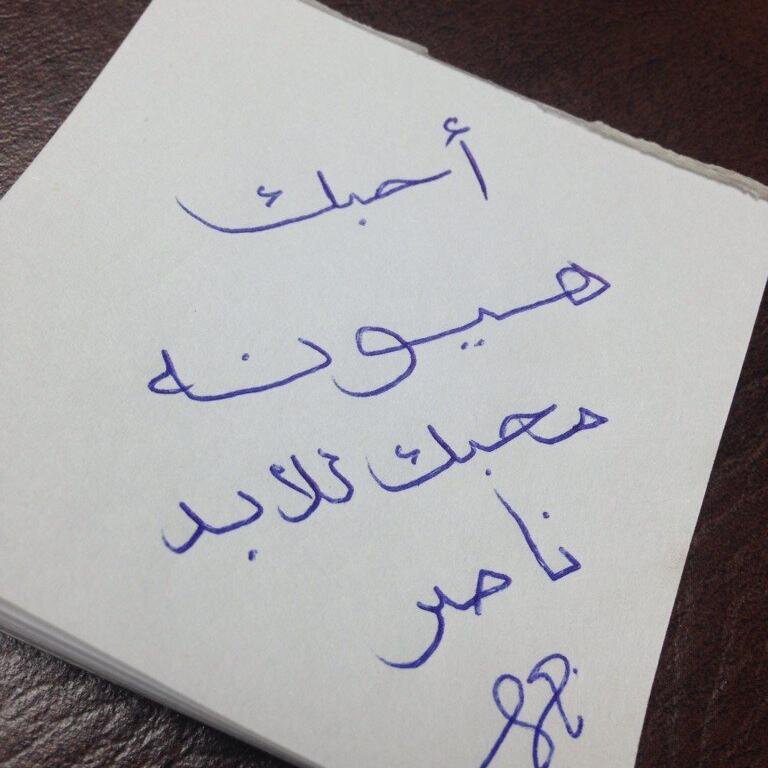 أحبك
هيونه
محبك للأبد
ناصر